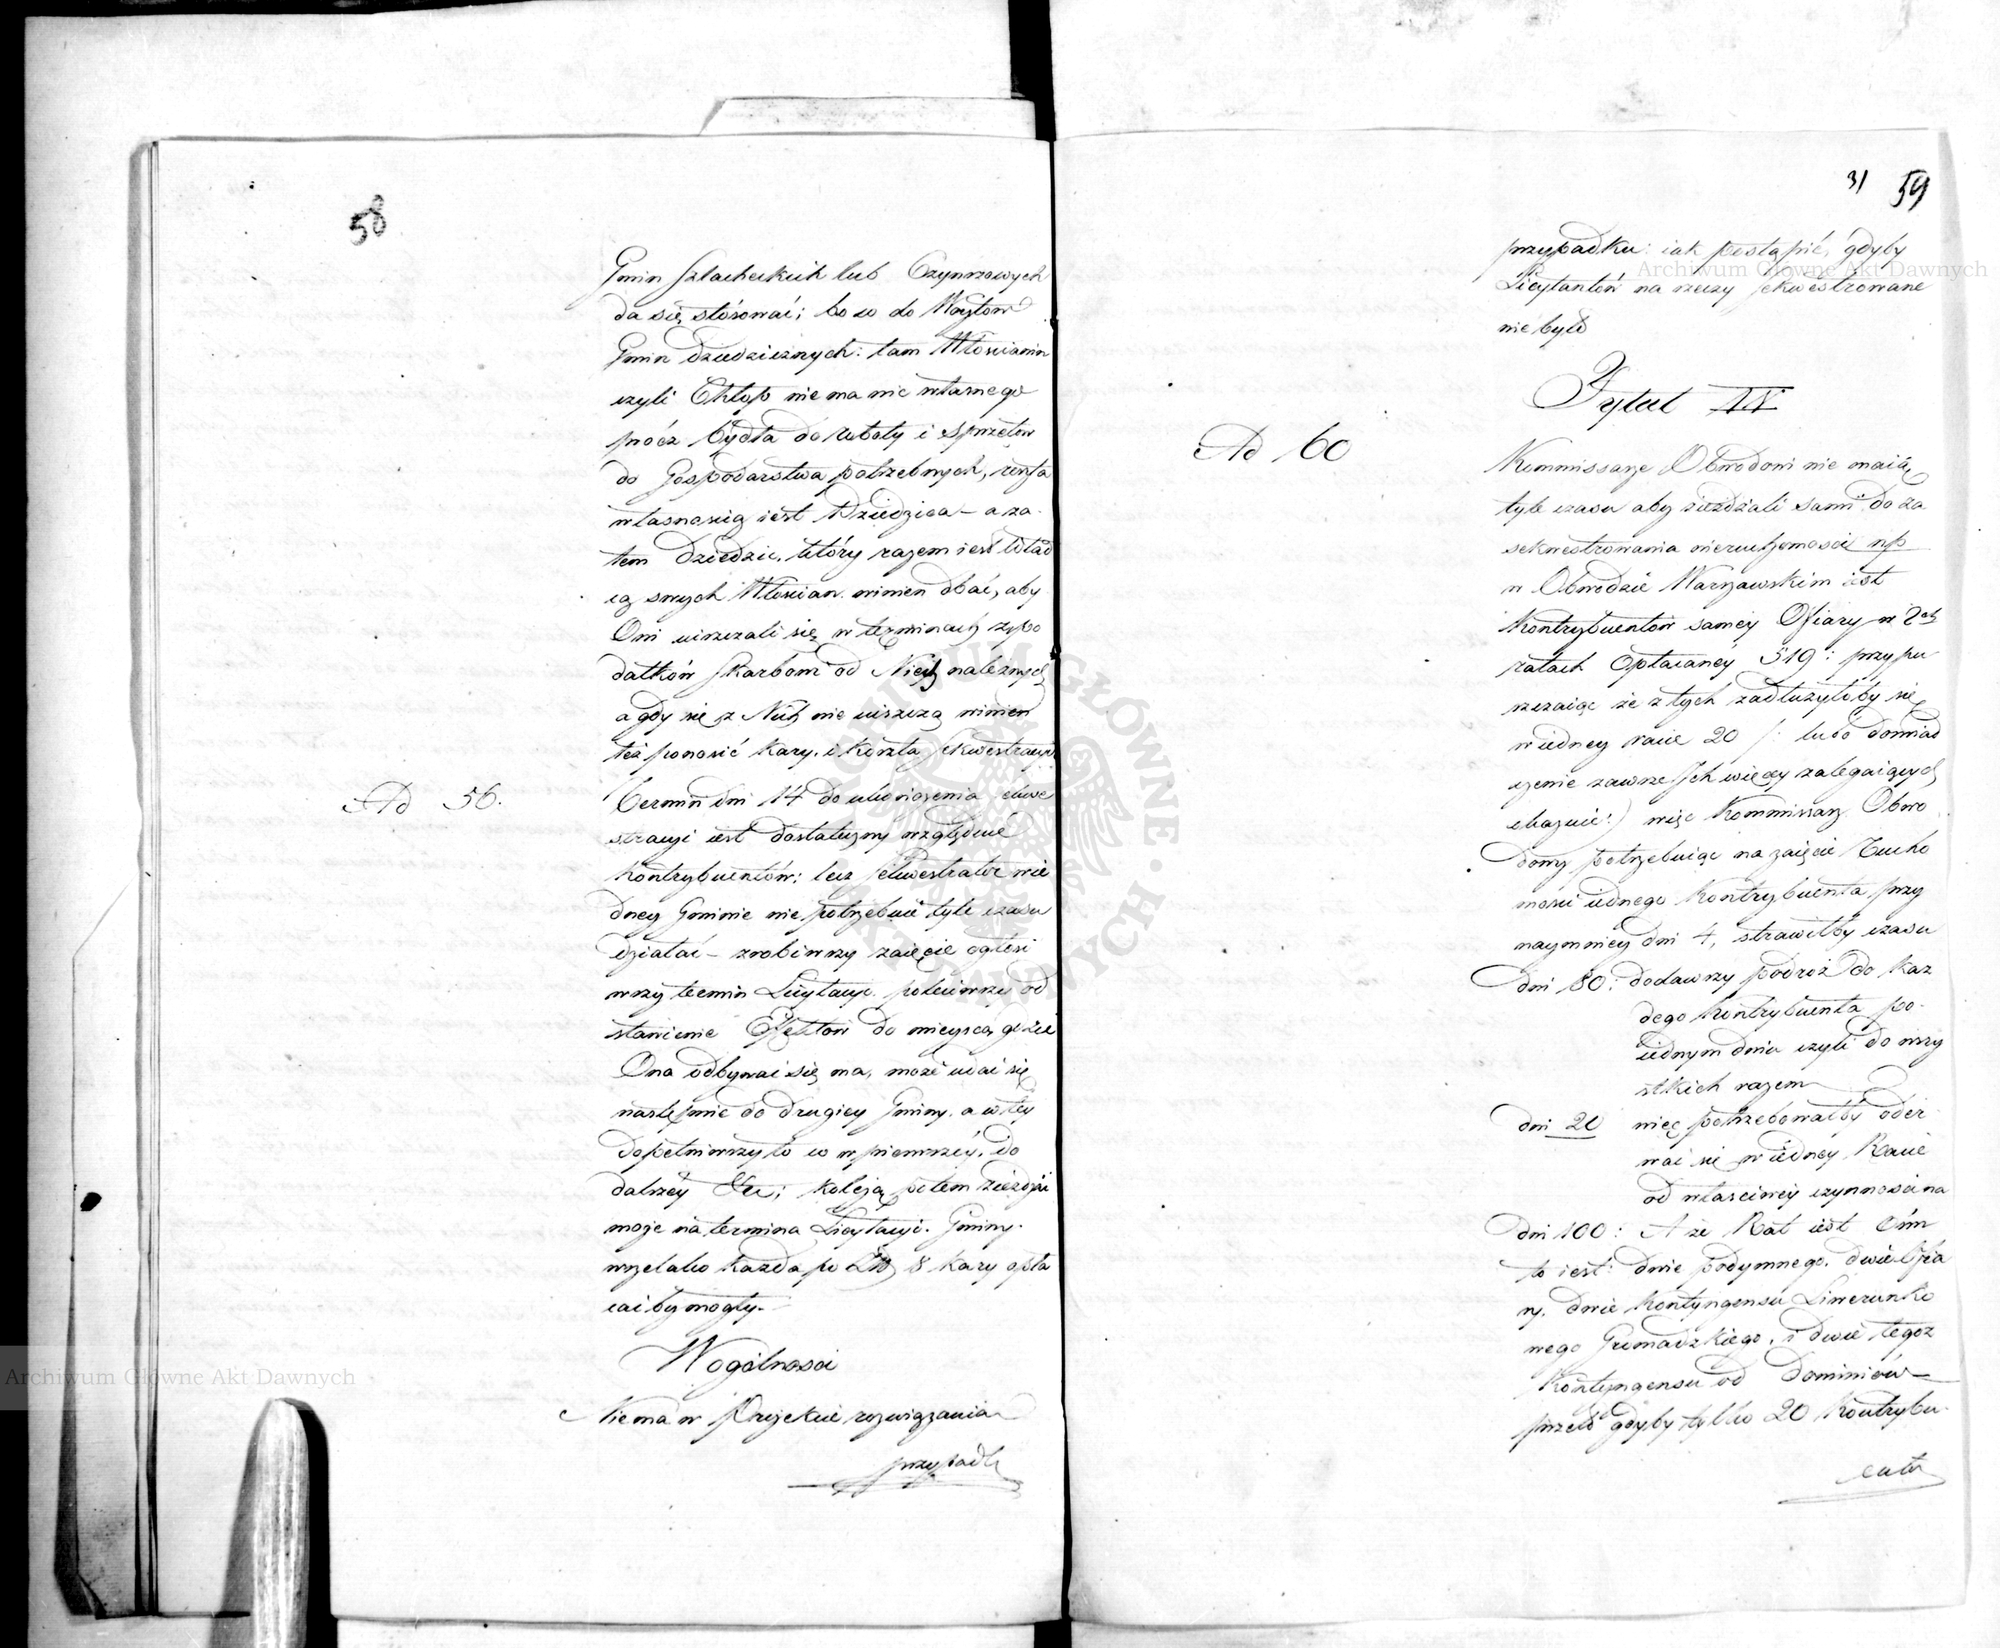 58
Gmin Szlacheckich lub Czynszowych
da się stósować; bo co do Woytów
Gmin dziedzicznych: tam Włościanin
czyli Chłop nie ma nic własnego
prócz bydła do roboty i sprzętów
do Gospodarstwa potrzebnych, reszta
własnością iest Dziedzica – a za-
tem Dziedzic, który razem iest
swych Włościan winien dbać, aby
Oni uiszczali się w terminach z po
datków Skarbowi od Nich należnych
a gdy się z Nich nie uiszczą winien
też ponosić kary i koszta Sekwestracyi
Ad 56.
Termin dni 14 do ukończenia Sekwe
stracyi iest dostateczny względnie
Kontrybuentów; lecz Sekwestrator w ie
dney Gminie nie potrzebuie tyle czasu
działać – zrobiwszy zaięcie ogłosi
wszy termin Licytacyi poleciwszy od
stawienie Effektów do mieysca gdzie
Ona odbywać się ma, może udać się
następnie do drugiey Gminy, a w tey
dopełniwszy to co w pierwszéy, do
dalszéy etc; koleją potem zieżdżać
może na termina Licytacyi. Gminy
wszelako każda po 8 kary opła
cać by mogły.
W ogólności
Niema w Projekcie rozwiązania
przypadk
31 59
przypadku: iak postąpić, gdyby
Licytantów na rzeczy sekwestrowane
nie było
Tytuł IV
Ad 60
Kommissarze Obwodowi nie maią
tyle czasu aby zieżdżali sami do za
sekwestrowania nieruchomości np
w Obwodzie Warszawskim iest
Kontrybuentów saméy Ofiary w 2ch
ratach opłacanéy 519: przypu
szczaiąc że z tych zadłużyłoby się
w iedney racie 20 /: lubo doświad
czenie zawsze Ich więcey zalegaiących
okazuie :/ więc Kommissarz Obwo
dowy potrzebuiąc na zaięcie Rucho
mości iednego Kontrybuenta przy
naymniéy dni 4, strawiłby czasu
dni 80: dodawszy podróż do każ
dego Kontrybuenta po
iednym dniu czyli do wszy
stkich razem
dni 20 więc potrzebowałby oder
wać się w iednéy Racie
od właściwéy czynności na
dni 100: A że Rat iest ośm
to iest: dwie podymnego, dwie Ofia
ry, dwie Kontyngensu Liwerunko
wego Gromadzkiego, i dwie tegoż
Kontyngensu od Dominiów –
przeto gdyby tylko 20 Kontrybu-
entów
Archiwum Główne Akt Dawnych
Archiwum Główne Akt Dawnych
ARCHIWUM GŁÓWNE AKT DAWNYCH